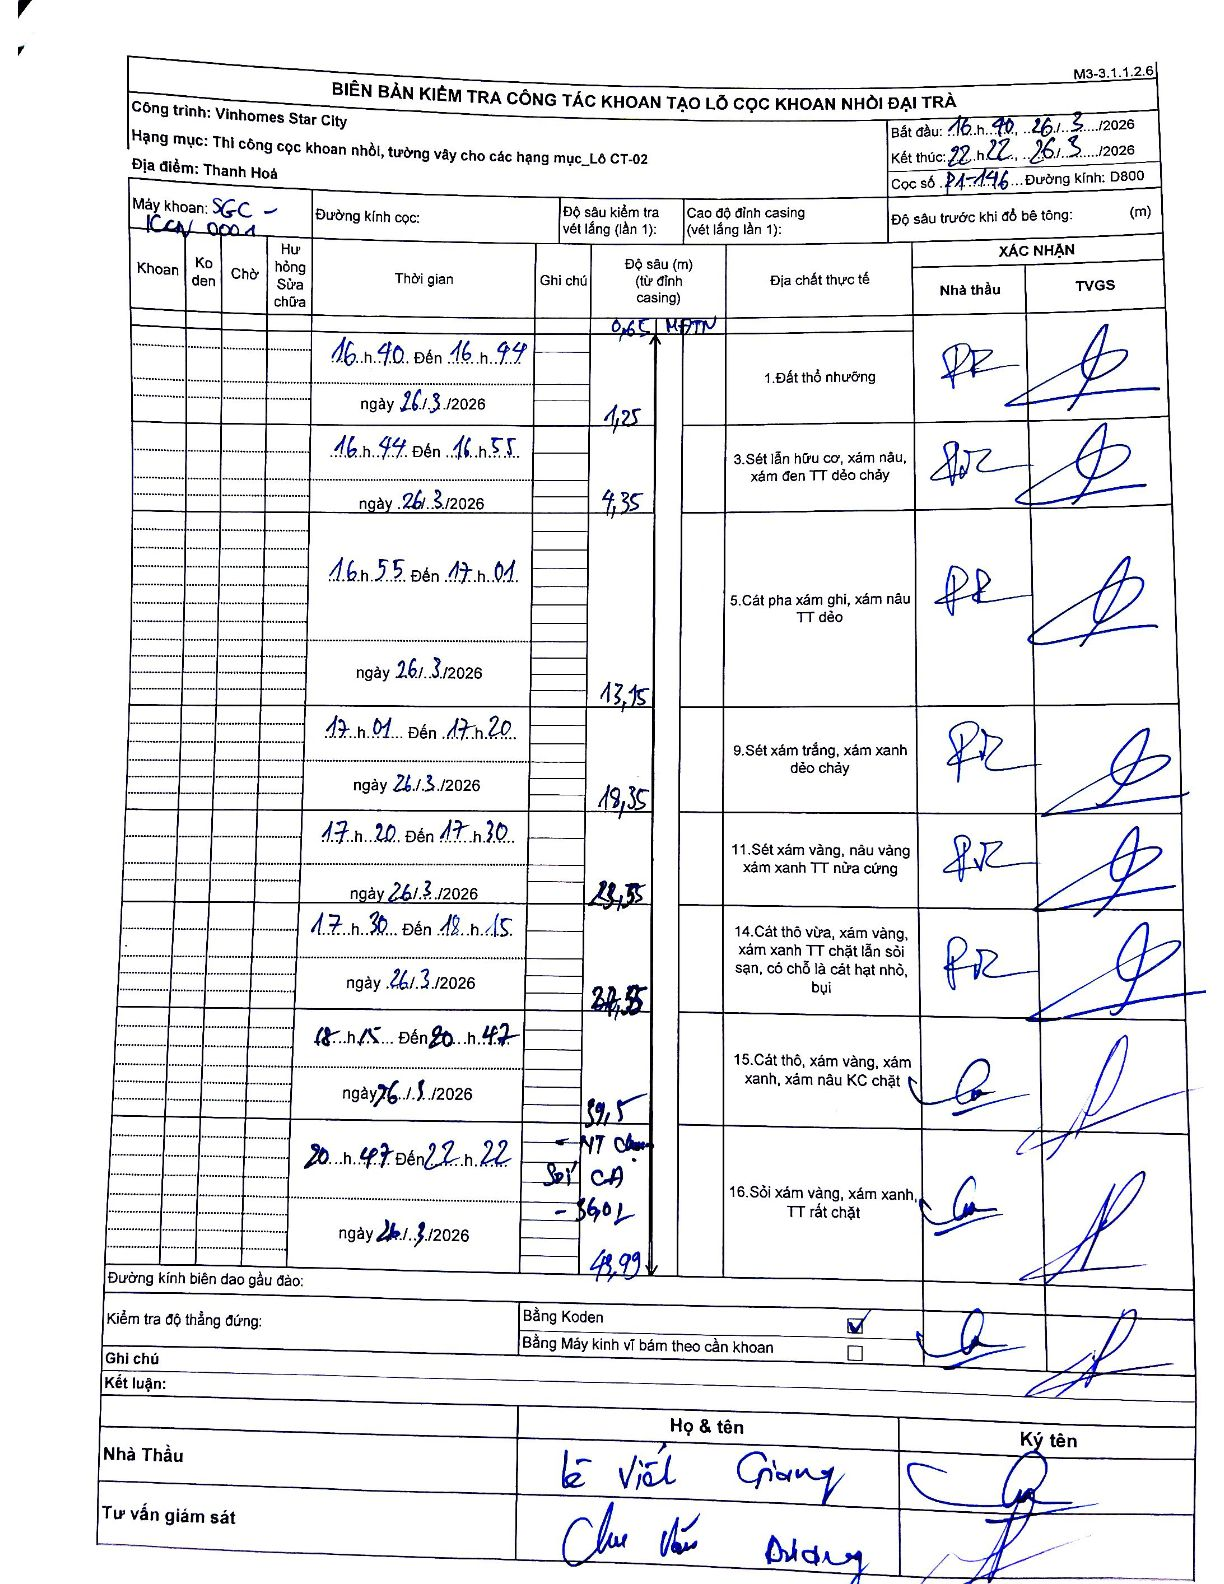 M3-3.1.1.2.6
BIÊN BẢN KIỂM TRA CÔNG TÁC KHOAN TẠO LỖ CỌC KHOAN NHỒI ĐẠI TRÀ
Công trình: Vinhomes Star City
Hạng mục: Thi công cọc khoan nhồi, tường vây cho các hạng mục_Lô CT-02
Địa điểm: Thanh Hoá
Bắt đầu: 16.h.40, 26/.3./2026
Kết thúc: 22.h22, 26/.3./2026
Cọc số P1-146 Đường kính: D800
Máy khoan: SGC -
KCN 0001
Đường kính cọc:
Độ sâu kiểm tra
vét lắng (lần 1):
Cao độ đỉnh casing
(vét lắng lần 1):
Độ sâu trước khi đổ bê tông: (m)
Khoan
Ko
den
Chờ
Hư
hỏng
Sửa
chữa
Thời gian
Ghi chú
Độ sâu (m)
(từ đỉnh
casing)
Địa chất thực tế
XÁC NHẬN
Nhà thầu
TVGS
0,65 MĐTN
16.h.40. Đến 16.h.44
ngày 26/.3/2026
1,25
1.Đất thổ nhưỡng
16.h.44. Đến 16.h.55
ngày 26/.3/2026
4,35
3.Sét lẫn hữu cơ, xám nâu,
xám đen TT dẻo chảy
16.h.55 Đến 17.h.01
ngày 26/.3/2026
13,15
5.Cát pha xám ghi, xám nâu
TT dẻo
17.h.01 Đến 17.h.20
ngày 26/.3/2026
18,35
9.Sét xám trắng, xám xanh
dẻo chảy
17.h.20 Đến 17.h.30
ngày 26/.3/2026
23,55
11.Sét xám vàng, nâu vàng
xám xanh TT nửa cứng
17.h.30 Đến 18.h.15
ngày 26/.3/2026
14.Cát thô vừa, xám vàng,
xám xanh TT chặt lẫn sỏi
sạn, có chỗ là cát hạt nhỏ,
bụi
18.h.15 Đến 20.h.47
ngày 26/.3/2026
39,5
15.Cát thô, xám vàng, xám
xanh, xám nâu KC chặt
20.h.47 Đến 22.h.22
ngày 26/.3/2026
- NT chạm
Sỏi CA
43,99
16.Sỏi xám vàng, xám xanh,
TT rất chặt
Đường kính biên dao gầu đào:
Kiểm tra độ thẳng đứng:
Bằng Koden
Bằng Máy kinh vĩ bám theo cần khoan
Ghi chú
Kết luận:
Họ & tên
Ký tên
Nhà Thầu
Lê Viết Giang
Tư vấn giám sát
Chu Văn Dương